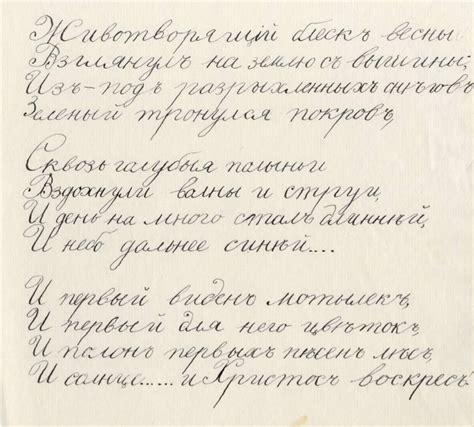 Животворящій блескъ весны
Взглянулъ на землю съ вышины,
Изъ-подъ разрыхленныхъ снѣговъ
Зеленый тронулся покровъ,
Сквозь голубыя полыньи
Вздохнули волны и струи,
И день на много сталъ длиннѣй,
И небо дальнее синѣй....
И первый виденъ мотылекъ,
И первый для него цвѣтокъ,
И полонъ первыхъ пѣсен лѣсъ,
И солнце...... и Христосъ воскресъ.